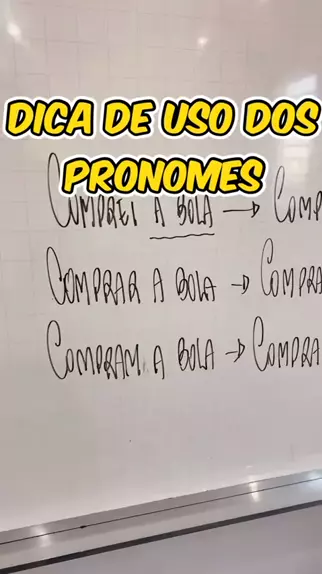 DICA DE USO DOS
PRONOMES
COMPREI A BOLA → COMP
COMPRAR A BOLA → COMPRA
COMPRAM A BOLA → COMPRA